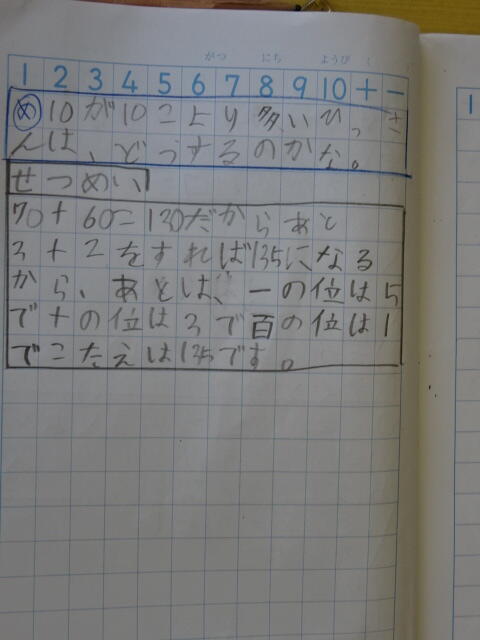 がつ にち ようび
1 2 3 4 5 6 7 8 9 10 + −
め 10が10こより多いひっさ
んは、どうするのかな。
せつめい
70+60=130だからあと
3+2をすれば135になる
から、あとは、一の位は5
で十の位は3で百の位は1
でこたえは135です。
1